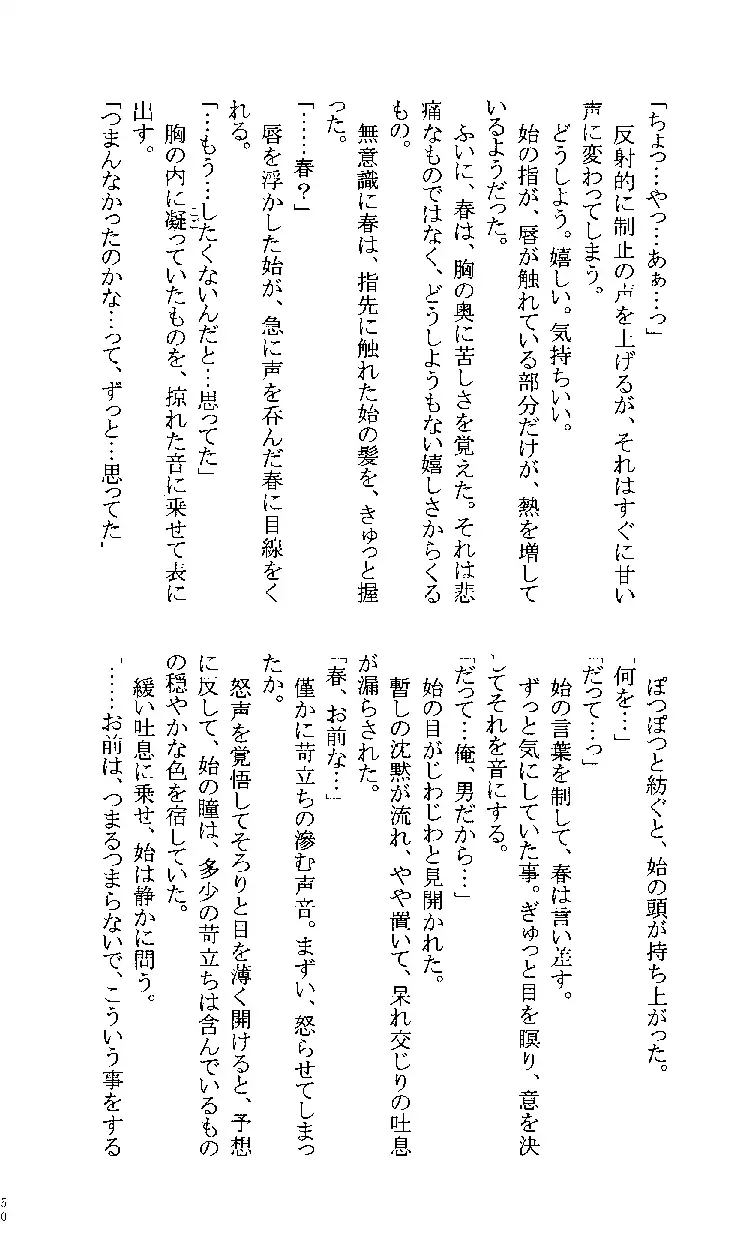 「ちょっ…やっ…あぁ…っ」
　反射的に制止の声を上げるが、それはすぐに甘い
声に変わってしまう。
　どうしよう。嬉しい。気持ちいい。
　始の指が、唇が触れている部分だけが、熱を増して
いるようだった。
　ふいに、春は、胸の奥に苦しさを覚えた。それは悲
痛なものではなく、どうしようもない嬉しさからくる
もの。
　無意識に春は、指先に触れた始の髪を、きゅっと握
った。
「……春？」
　唇を浮かした始が、急に声を呑んだ春に目線をく
れる。
「…もう…したくないんだと…思ってた」
　胸の内に凝っていたものを、掠れた音に乗せて表に
出す。
「つまんなかったのかな…って、ずっと…思ってた」
　ぽつぽつと紡ぐと、始の頭が持ち上がった。
「何を…」
「だって…っ」
　始の言葉を制して、春は言い差す。
　ずっと気にしていた事。ぎゅっと目を瞑り、意を決
してそれを音にする。
「だって…俺、男だから…」
　始の目がじわじわと見開かれた。
　暫しの沈黙が流れ、やや置いて、呆れ交じりの吐息
が漏らされた。
「春、お前な…」
　僅かに苛立ちの滲む声音。まずい、怒らせてしまっ
たか。
　怒声を覚悟してそろりと目を薄く開けると、予想
に反して、始の瞳は、多少の苛立ちは含んでいるもの
の穏やかな色を宿していた。
　緩い吐息に乗せ、始は静かに問う。
「……お前は、つまるつまらないで、こういう事をする
50